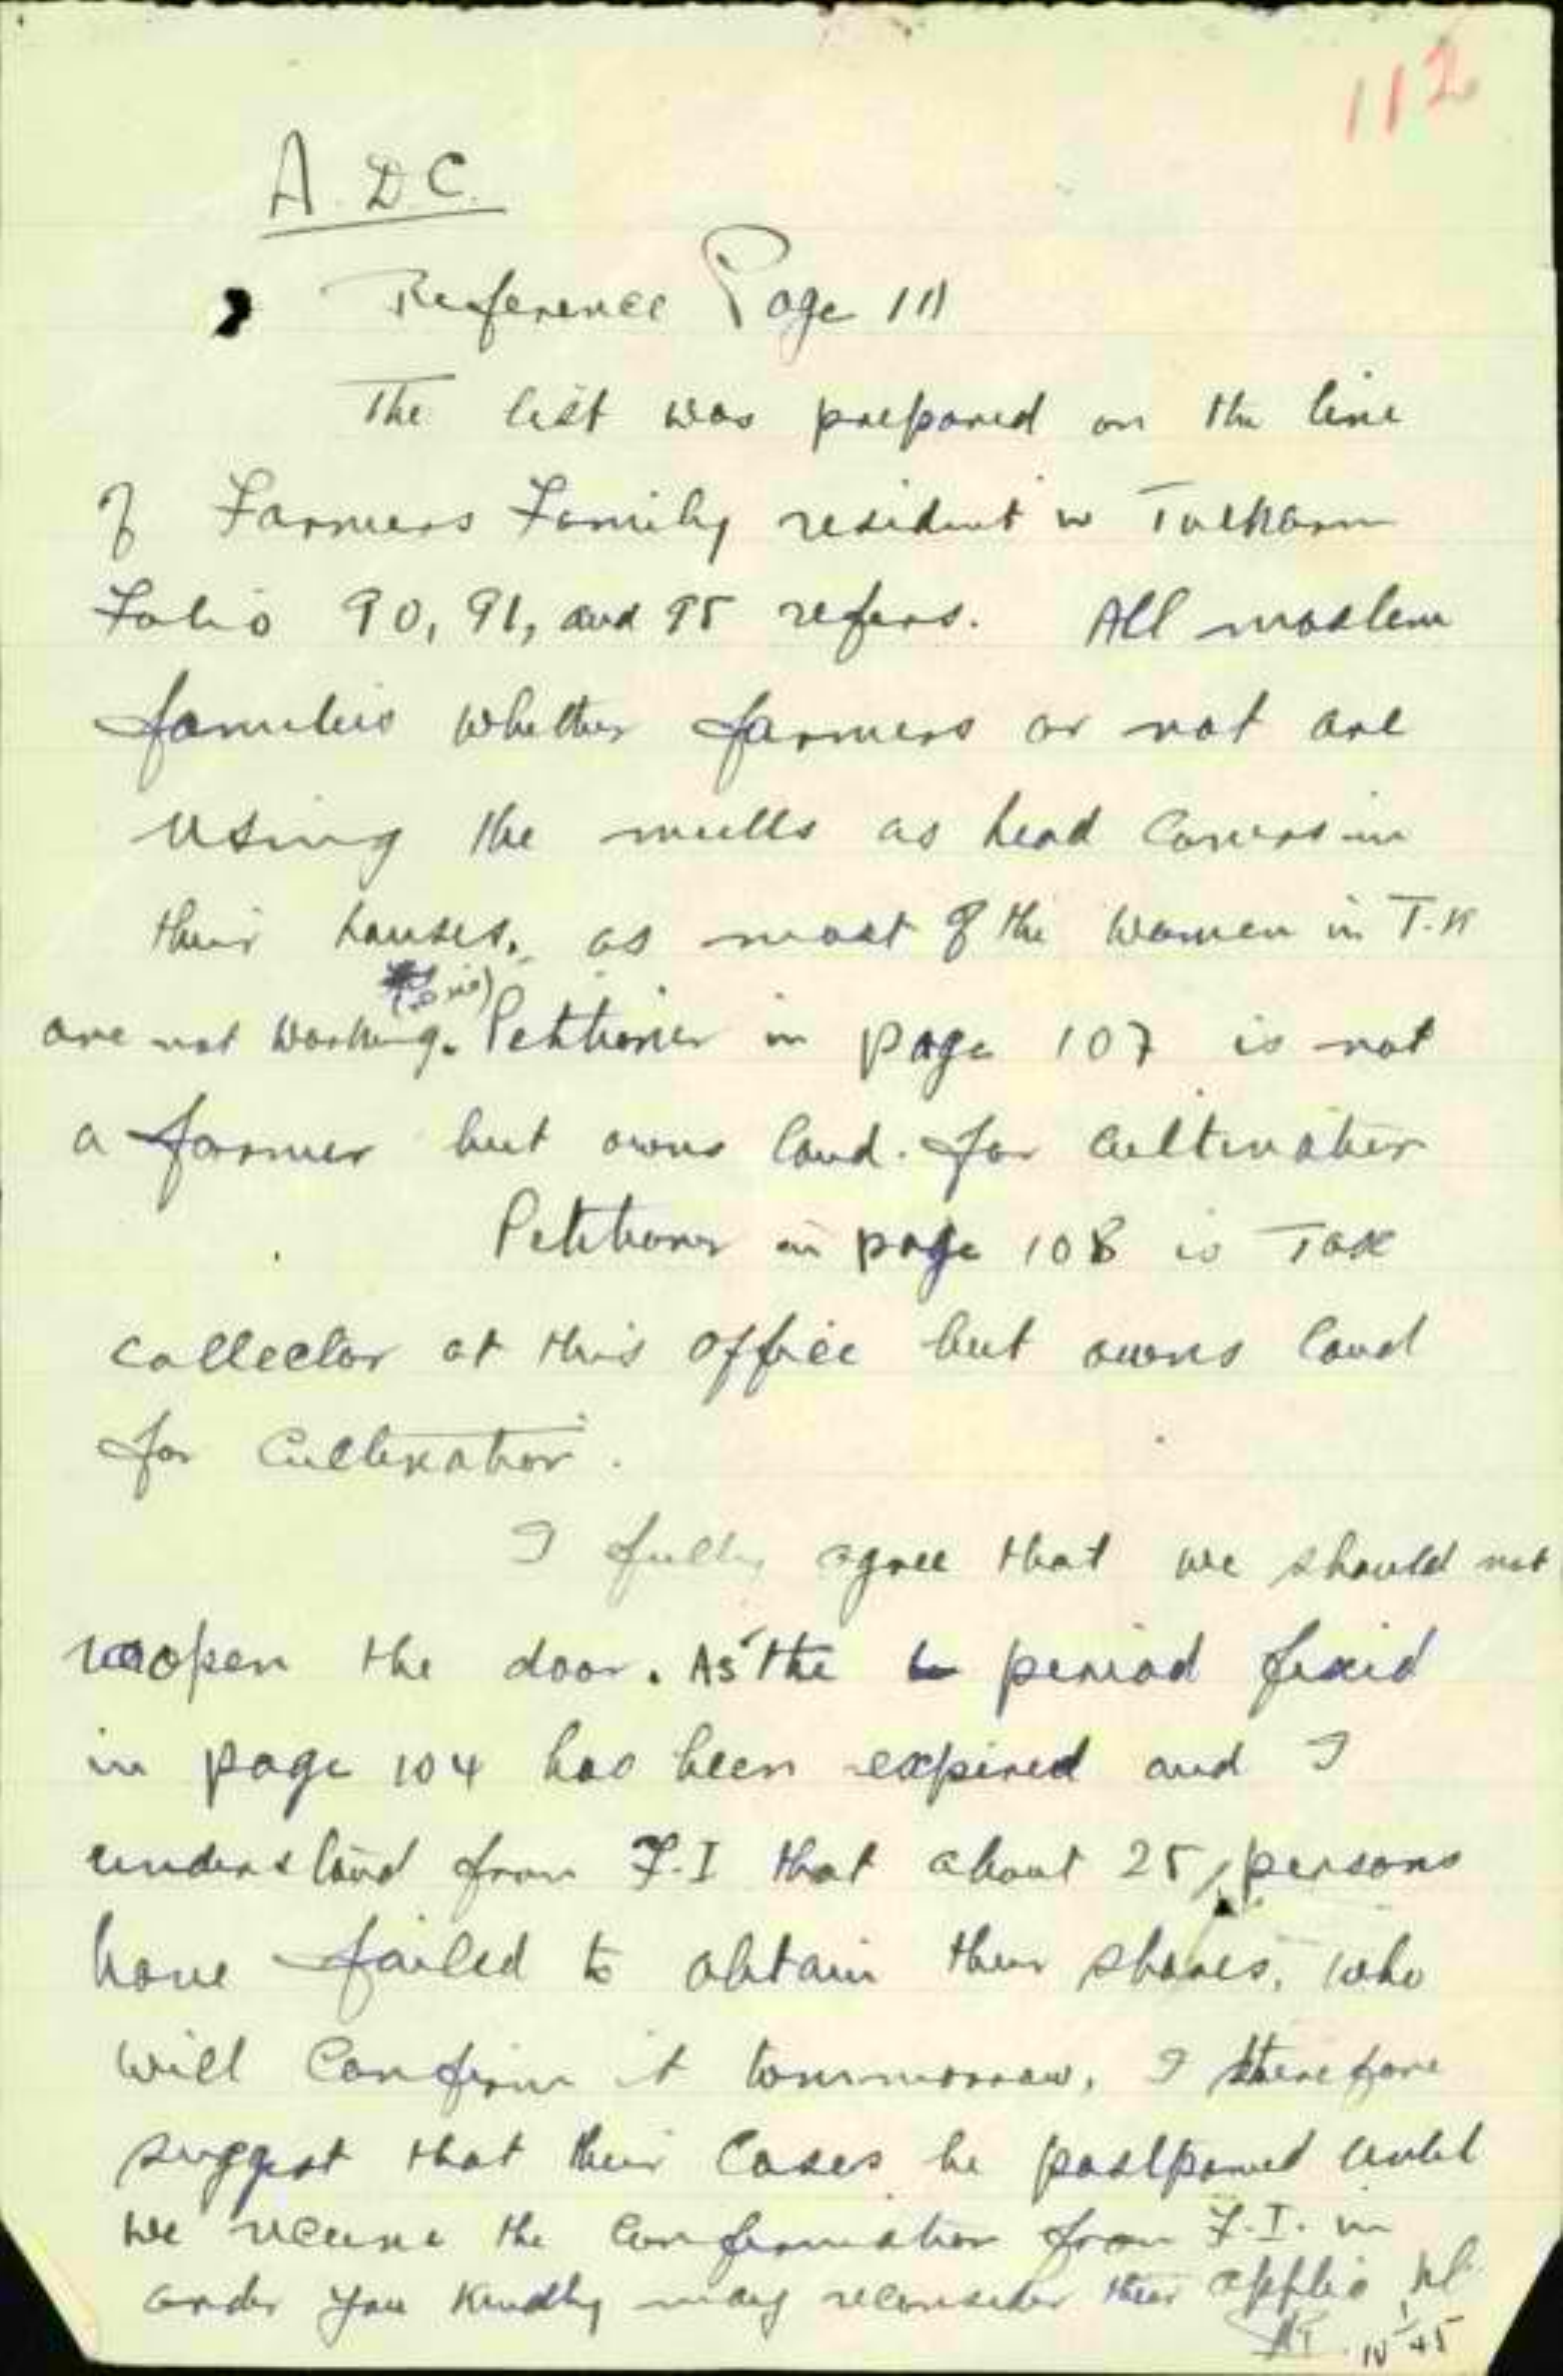 112
A.D.C.
Reference Page 111
The list was prepared on the line
of Farmers Family resident in Tulkarm
Folio 90, 91, and 95 refers. All moslem
families whether farmers or not are
using the mulls as head covers in
their houses, as most of the women in T.K
are not working. Petitioner in page 107 is not
a farmer but owns land. for cultivation
Petitioner in page 108 is Tax
collector at this office but owns land
for cultivation.
I fully agree that we should not
reopen the door. As the period fixed
in page 104 has been expired and I
understand from F.I that about 25 persons
have failed to obtain their shares, who
will confirm it tommorrow, I therefore
suggest that their cases be postponed until
we receive the confirmation from F.I. in
order you kindly may reconsider their applic